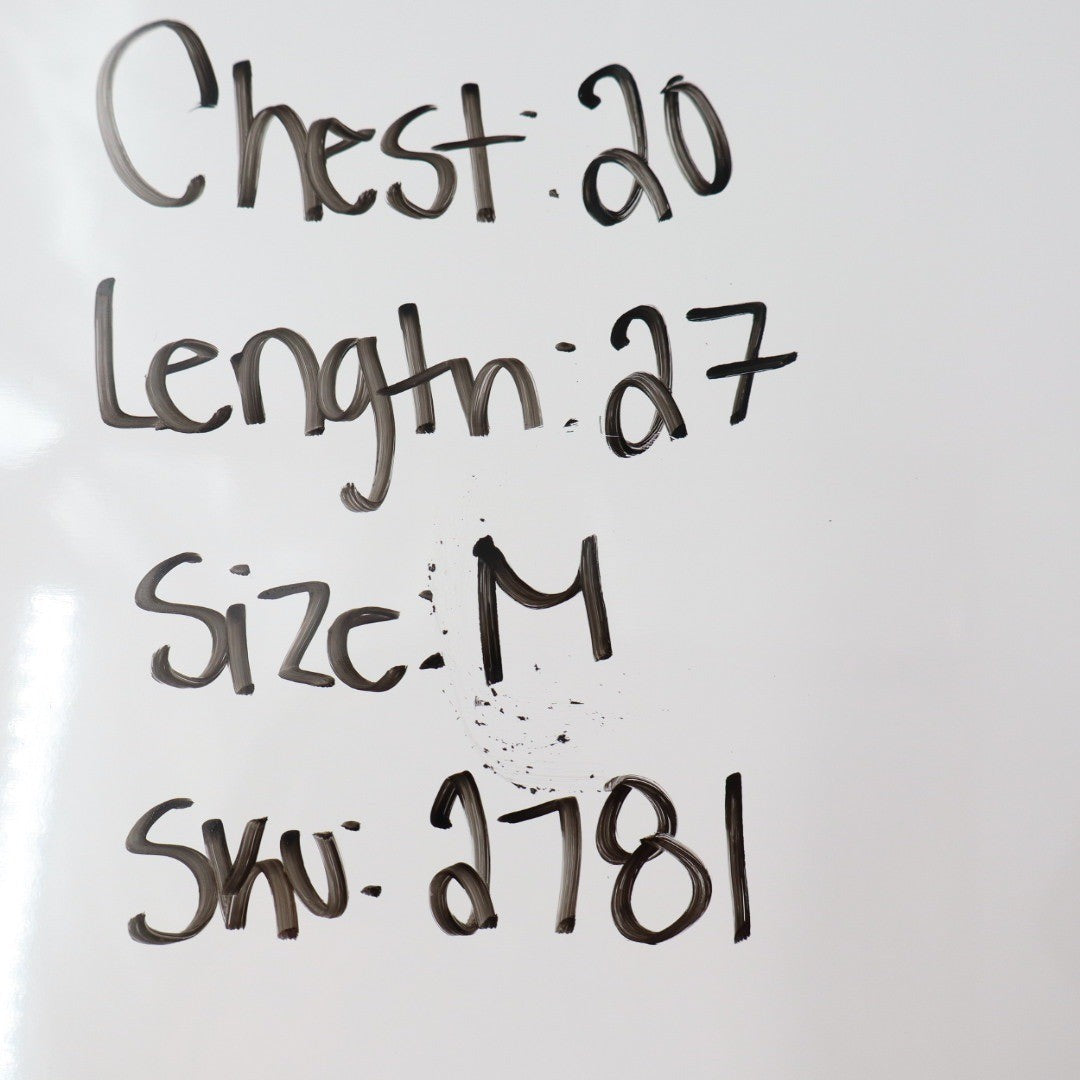 Chest: 20
Length: 27
Size: M
Sku: 2781